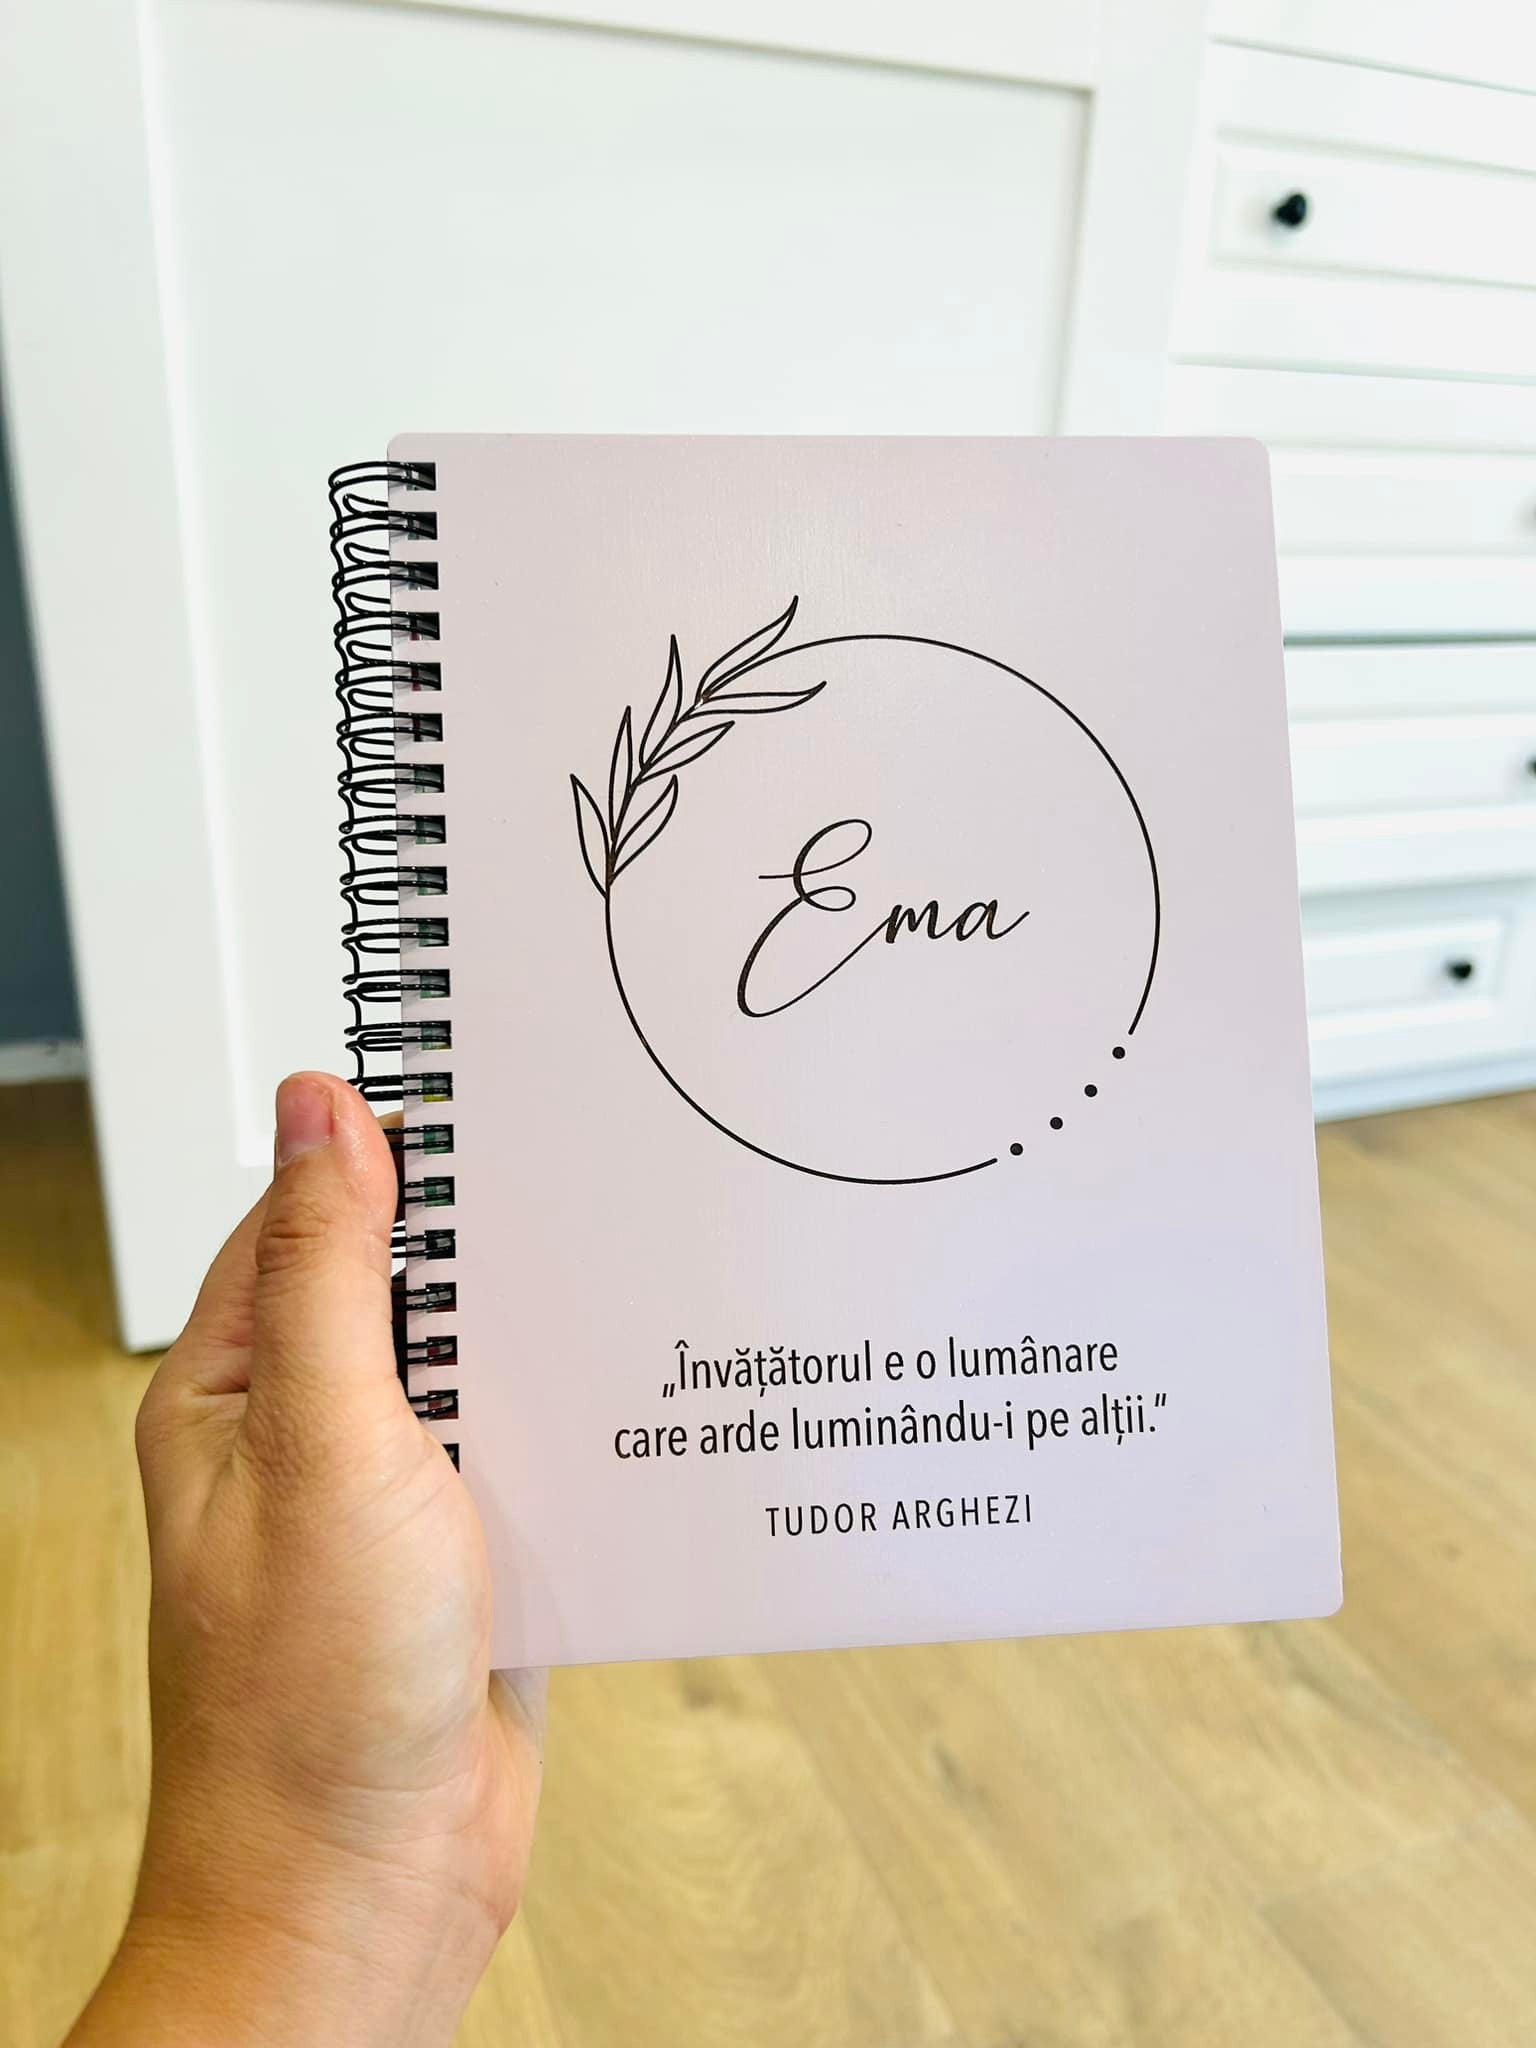 Ema
„Învățătorul e o lumânare
care arde luminându-i pe alții.”
TUDOR ARGHEZI